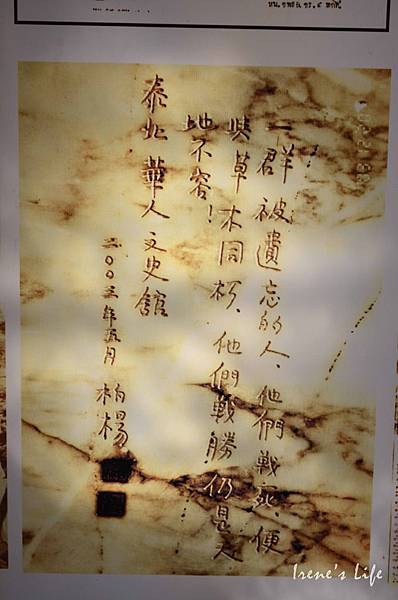 一群被遺忘的人、他們戰死便
與草木同朽、他們戰勝仍是天
地不容！
泰北華人文史館
二〇〇三年五月 柏楊
Irene's Life